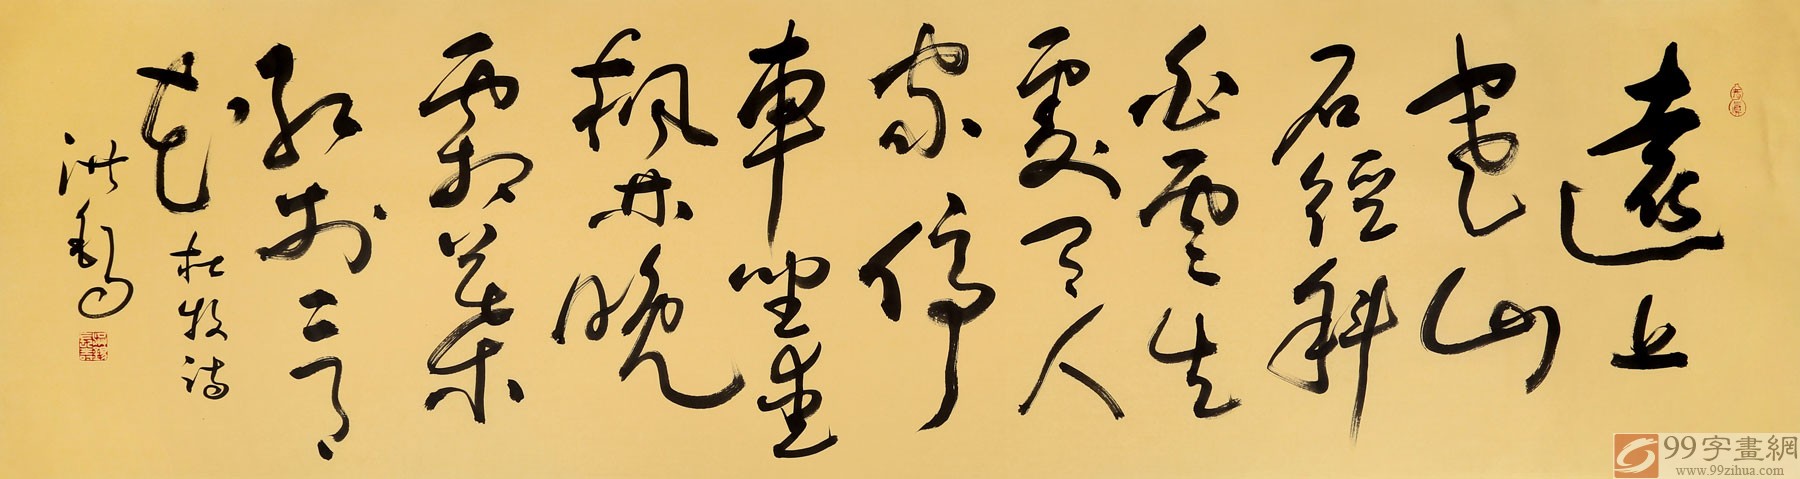 遠上
寒山
石徑斜
白雲生
處有人
家停
車坐愛
楓林晚
霜葉
紅於二月
花
杜牧詩
洪
99字畫網
www.99zihua.com